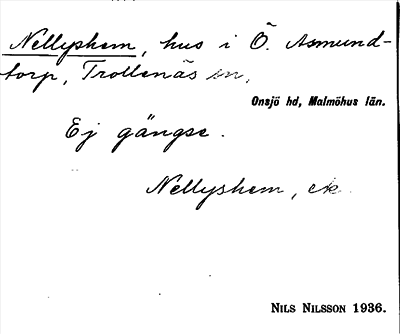 Nellyshem, hus i Ö. Asmund-
torp, Trollenäs sn,
Onsjö hd, Malmöhus län.
Ej gängse.
Nellyshem, ek
NILS NILSSON 1936.